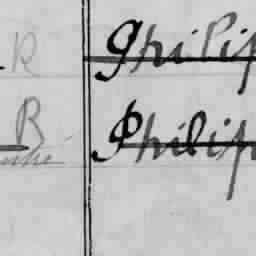 R Philip
B Philip